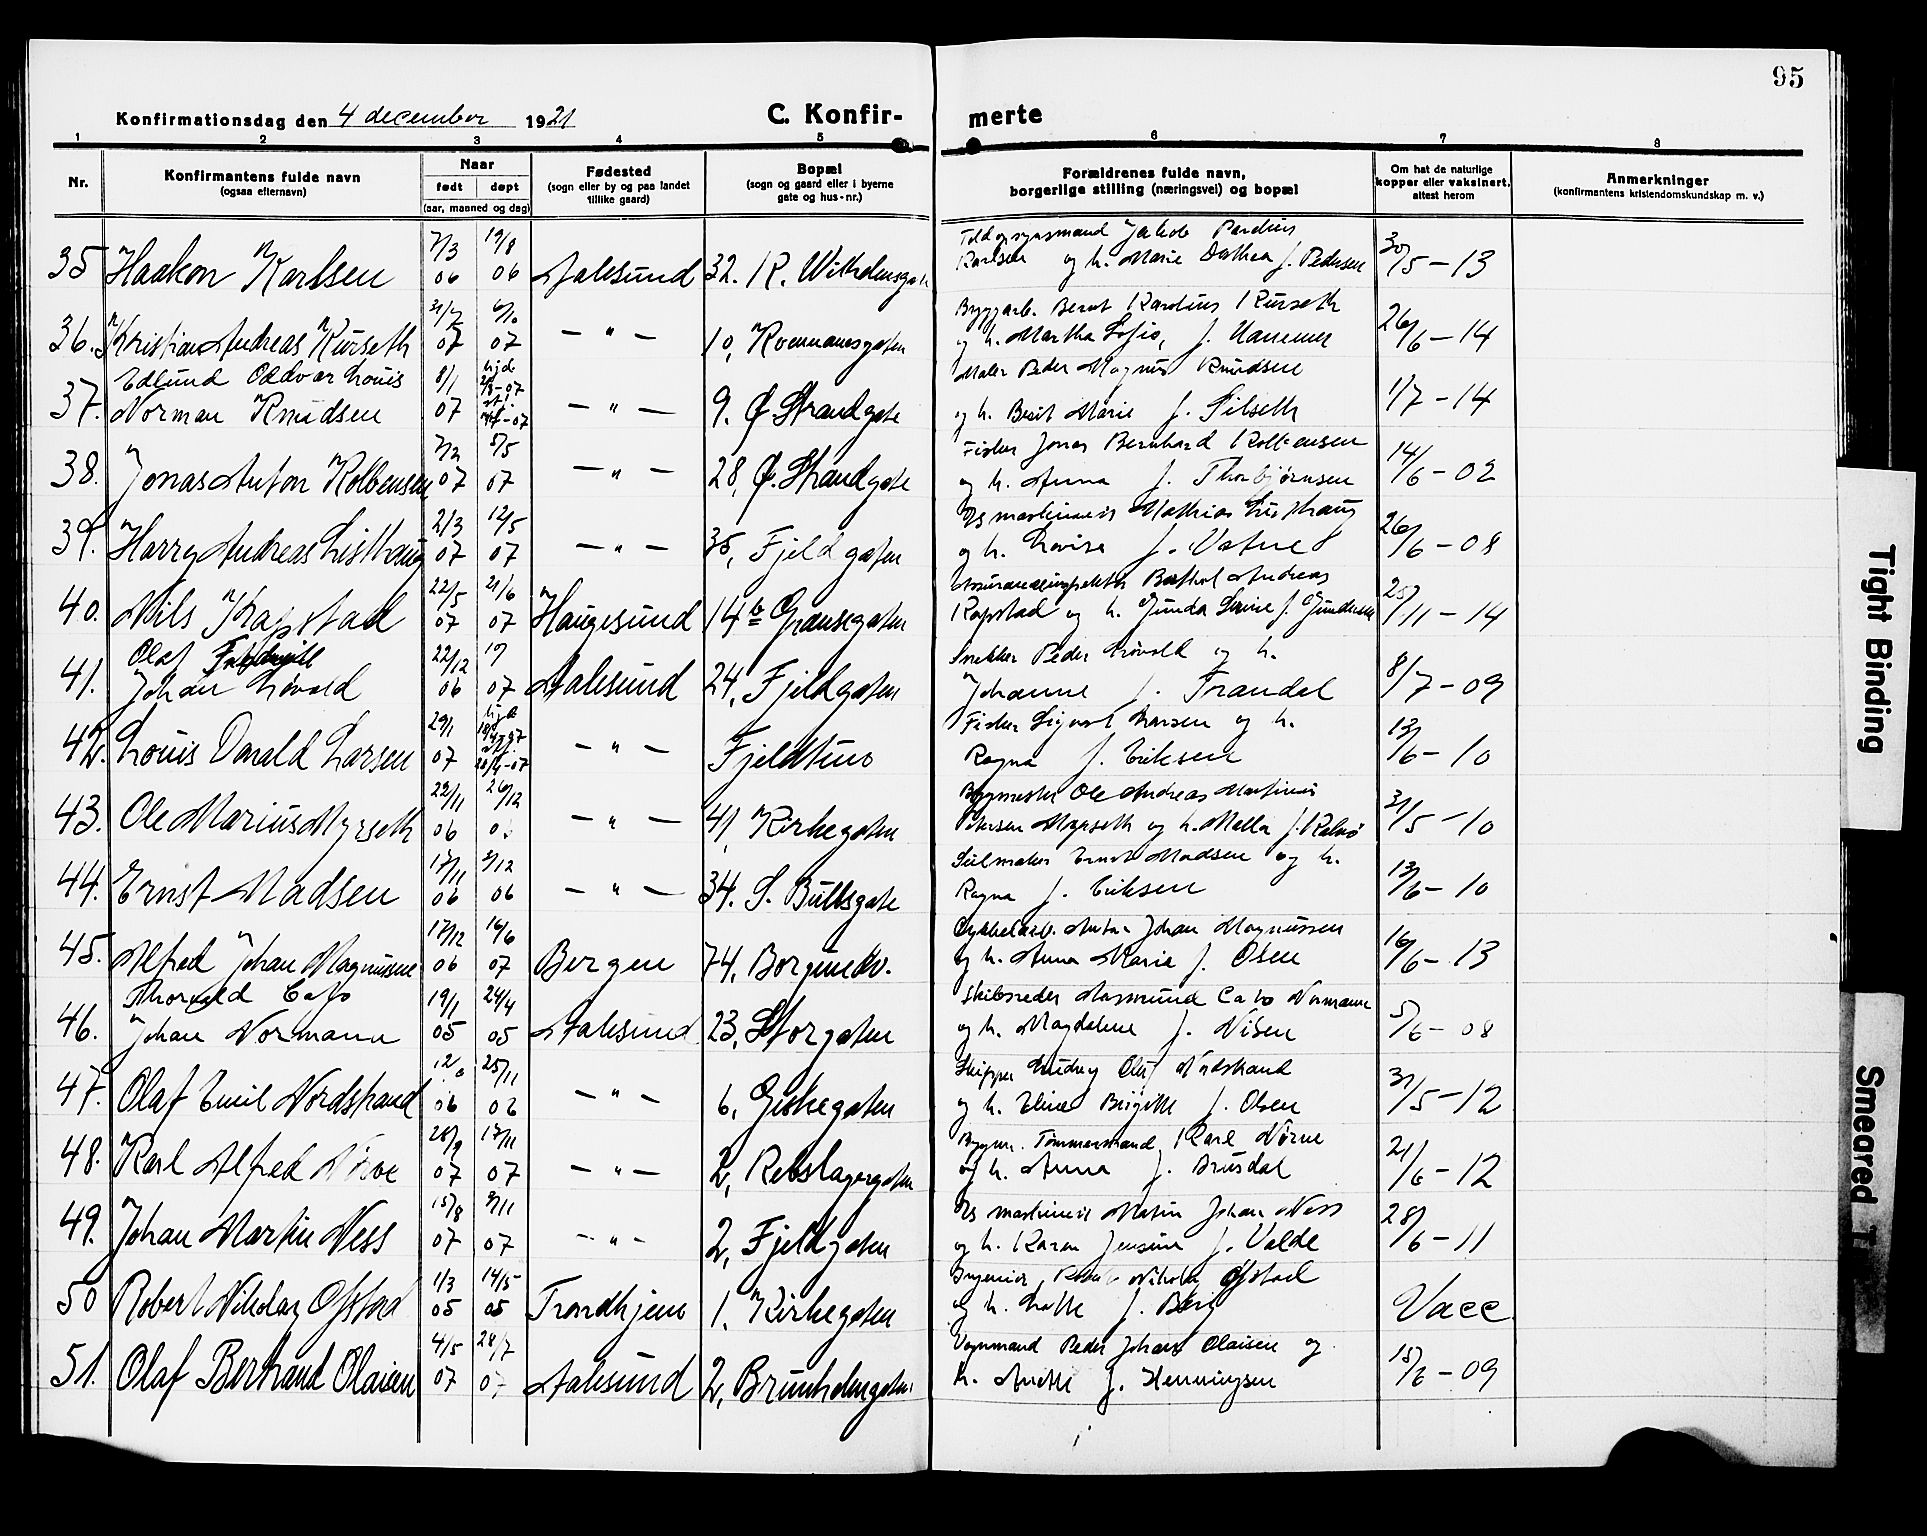 95
Konfirmationsdag den 4 december 1921
C. Konfir-
merte
1 2 3 4 5 6 7 8
Nr.
Konfirmantens fulde navn
(ogsaa efternavn)
Naar
født døpt
(aar, maaned og dag)
Fødested
(sogn eller by og paa landet
tillike gaard)
Bopæl
(sogn og gaard eller i byerne
gate og hus-nr.)
Forældrenes fulde navn,
borgerlige stilling (næringsvei) og bopæl
Om hat de naturlige
kopper eller vaksinert,
attest herom
Anmerkninger
(konfirmantens kristendomskundskap m. v.)
7/3 19/8 Jakob Pardius
35 Haakon Karlsen 06 06 Aalesund 32. K. Wilhelmsgate Karlsen og h. Marie Dathea f. Pedersen 30/5 - 13
31/7 6/10 Byggarb. Bernt Karolius Kurseth
36. Kristian Andreas Kurseth 07 07 - " - 10, og h. Martha Sofie, f. 26/6 - 14
Edlund Oddvar Louis 8/1 hjd. Maler Peder Magnus Knudsen
37. Norman Knudsen 07 - " - 9. Ø Strandgate og h. Berit Marie f. 1/7 - 14
7/2 5/5 Fisker Jonas Bernhard Kolbensen
38. Jonas Anton Kolbensen 07 07 - " - 28, Ø. Strandgate og h. Anna f. Thorbjørnsen 14/6 - 02
2/3 12/5 Mathias Listhaug
39. Harry Andreas Listhaug 07 07 - " - 35, Fjeldgaten og h. Lovise f. Vatne 26/6 - 08
22/5 21/6 Andreas
40. Nils Rapstad 07 07 Haugesund 14 b Grensegaten Rapstad og h. Gunda f. Gundersen 25/11 - 14
Olaf 22/12 19 Snekker Peder Løvold og h.
41. Johan Løvold 06 07 Aalesund 24, Fjeldgaten Johanne f. Frandal 8/7 - 09
29/1 hjd. Fisker Sigurd Larsen og h.
42. Louis Donald Larsen 07 - " - Fjeldtun Ragna f. Eriksen 13/6 - 10
22/11 26/12 Byggmester Ole Andreas Martinus
43. Ole Marius Myrseth 06 - " - 41, Kirkegaten Petersen Myrseth og h. f. 31/5 - 10
17/11 9/12 Seilmaker Ernst Madsen og h.
44. Ernst Madsen 06 06 - " - 34. S. Bullsgate Ragna f. Eriksen 13/6 - 10
17/12 16/6 Anton Johan Magnussen
45. Alfred Johan Magnussen 06 07 Bergen 74, Borgundv. og h. Anna Marie f. Olsen 16/6 - 13
Thorvald Cato 19/1 24/4 Skibsreder Cato Normann
46. Johan Normann 05 05 Aalesund 23, Storgaten og h. Magdalene f. 5/6 - 08
25/11 Skipper Ludvig Olaf Nordstrand
47. Olaf Emil Nordstrand 06 06 - " - 6, Giskegaten og h. Eline Birgitte f. Olsen 31/5 - 12
28/9 17/11 Tømmermand Karl Nørve
48. Karl Alfred Nørve 07 07 - " - 2, Rebslagergaten og h. Anna f. Brusdal 21/6 - 12
15/8 9/11 Martin Johan Ness
49. Johan Martin Ness 07 07 - " - 2, Fjeldgaten og h. Karen Jensine f. Valde 28/6 - 11
1/3 14/5 Ingeniør Nikolai Ofstad
50 Robert Nikolay Ofstad 05 05 Trondhjem 1. Kirkegaten og h. Lotte f. Berg Vacc
4/5 28/7 Vognmand Peder Johan Olaisen og
51. Olaf Bertrand Olaisen 07 07 Aalesund 2, Brunholmgaten h. Anette f. Henningsen 15/6 - 09
Tight Binding
Smeared T